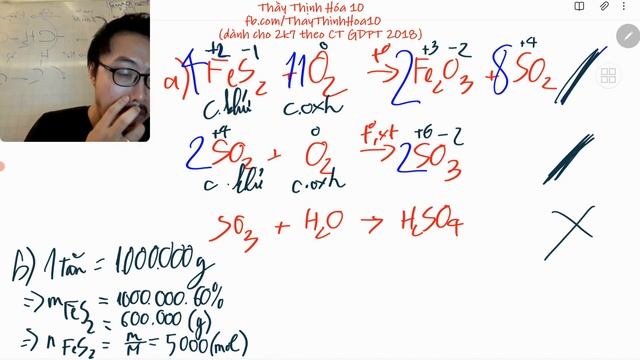 Thầy Thịnh Hóa 10
fb.com/ThayThinhHoa10
(dành cho 2k7 theo CT GDPT 2018)
+2 -1 0 +3 -2 +4
a) 4FeS₂ + 11O₂ →t° 2Fe₂O₃ + 8SO₂
c.khử c.oxh
+4 0 +6 -2
2SO₂ + O₂ →t°, xt 2SO₃
c.khử c.oxh
SO₃ + H₂O → H₂SO₄
b) 1 tấn = 1000.000 g
=> mFeS₂ = 1000.000.60%
= 600.000 (g)
=> nFeS₂ = m/M = 5000 (mol)